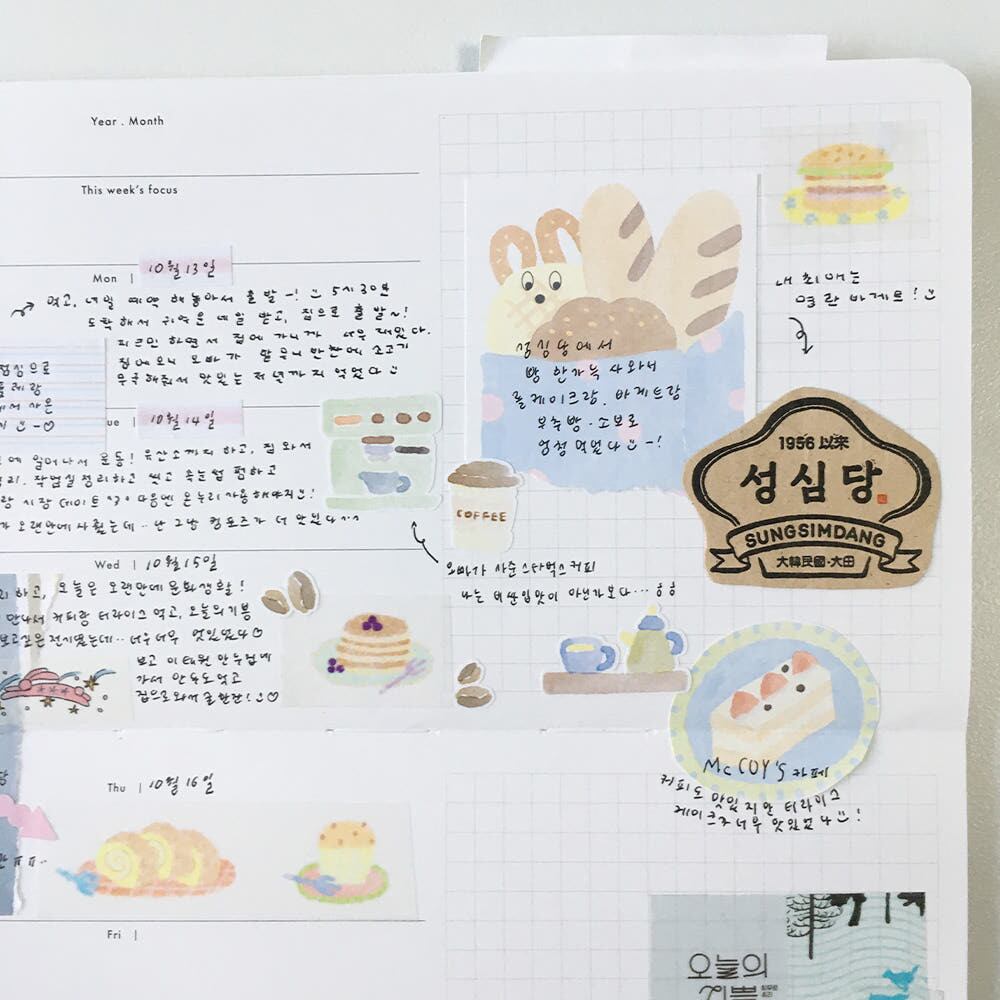 Year . Month
This week's focus
Mon | 10월 13일
먹고, 내일 예약 해놓아서 출발~! 5시 30분
도착해서 귀여운 네일 받고, 집으로 출발~!
피크민 하면서 집에 가니까 너무 재밌다.
집에 오니 오빠가 알무니 반찬에 소고기
무국 해줘서 맛있는 저녁까지 먹었다
점심으로
플레랑
에서 사온
ue | 10월 14일
에 일어나서 운동! 유산소까지 하고, 집 와서
리. 작업실 정리하고 씻고 속눈썹 펌하고
랑 시장 데이트 ^3^ 다음엔 온누리 사용해야지!
가 오랜만에 사줬는데.. 난 그냥 컴포즈가 더 맛있다^^
Wed | 10월 15일
하고, 오늘은 오랜만에 문화생활!
만나서 커피랑 티라미스 먹고, 오늘의 기쁨
보고싶은 전시였는데.. 너무너무 멋있었다♡
보고 이태원
가서 안주도 먹고
집으로 와서 꿀한잔!♡
Thu | 10월 16일
ㅠㅠ..
Fri |
성심당에서
빵 한가득 사와서
롤케이크랑. 바게트랑
부추빵·소보로
엄청 먹었다~!
내 최애는
명란 바게트!
1956 以來
성심당
SUNGSIMDANG
大韓民國·大田
COFFEE
오빠가 사준 스타벅스 커피
나는 비싼 입맛이 아닌가보다... ㅎㅎ
McCOY'S 카페
커피도 맛있지만 티라미스
케이크가 너무 맛있었다!
오늘의
기쁨